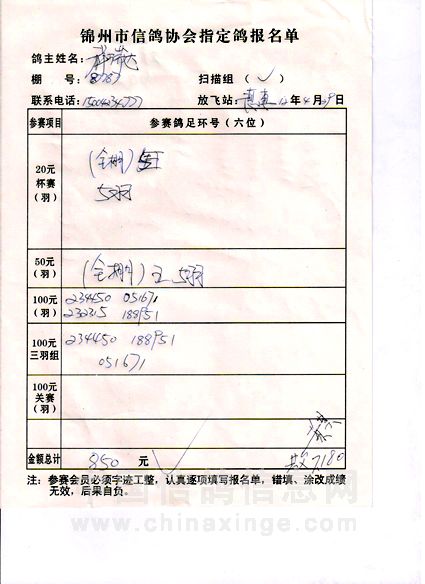 锦州市信鸽协会指定鸽报名单
鸽主姓名：
棚 号：
扫描组（✓）
联系电话：
放飞站： 年4月29日
参赛项目 参赛鸽足环号（六位）
20元
杯赛
（羽）
（全棚）
5羽
50元
（羽）
（全棚） 5羽
100元
（羽）
234450 051671
232315 188951
100元
三羽组
234450 188951
051671
100元
关赛
（羽）
金额总计 850 元
共 7180
注：参赛会员必须字迹工整，认真逐项填写报名单，错填、涂改成绩
无效，后果自负。
中国信鸽信息网
www.chinaxinge.com